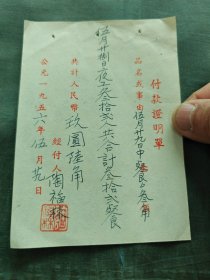 付款證明單
品名或事由伍月廿九日中飯食每叁角
伍月廿捌日夜工叁拾弍人共合計叁拾弍飯食
共計人民幣玖圓陸角
經付人陶福林
公元一九五六年伍月廿九日